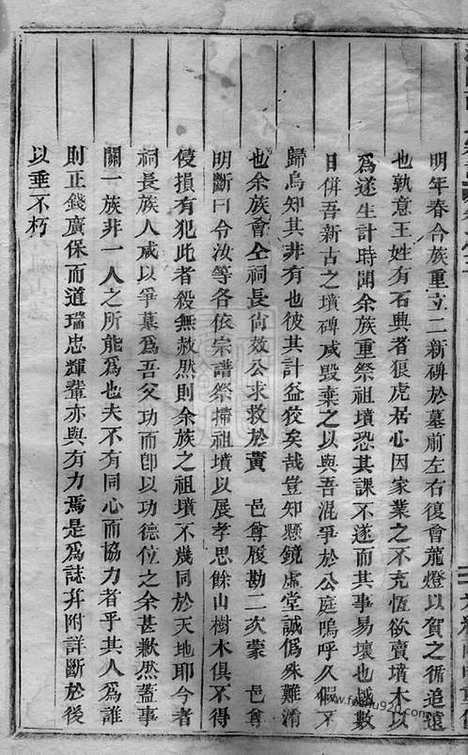 明年春合族重立二新碑於墓前左右復會龍燈以賀之循追遠
也孰意王姓有石興者狼虎居心因家業之不充恆欲賣墳木以
為遂生計時聞余族重祭祖墳恐其課不遂而其事易壞也越數
日併吾新古之墳碑咸毀棄之以與吾混爭於公庭嗚呼久假不
歸烏知其非有也彼其計益狡矣哉豈知懸鏡虛堂誠偽殊難淆
也余族會仝祠長尚效公求救於黃 邑尊履勘二次蒙 邑尊
明斷曰令汝等各依宗譜祭掃祖墳以展孝思餘山樹木俱不得
侵損有犯此者殺無赦然則余族之祖墳不幾同於天地耶今者
祠長族人咸以爭墓為吾父功而卽以功德位之余甚歉然蓋事
關一族非一人之所能為也夫不有同心而協力者乎其人為誰
則正錢廣保而道瑞忠輝輩亦與有力焉是為誌幷附詳斷於後
以垂不朽